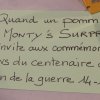 Quand un pomm
MONTY'S SURPR
invite aux commémor
s du centenaire
n de la guerre 14-